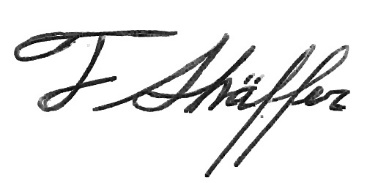 T Shäffer